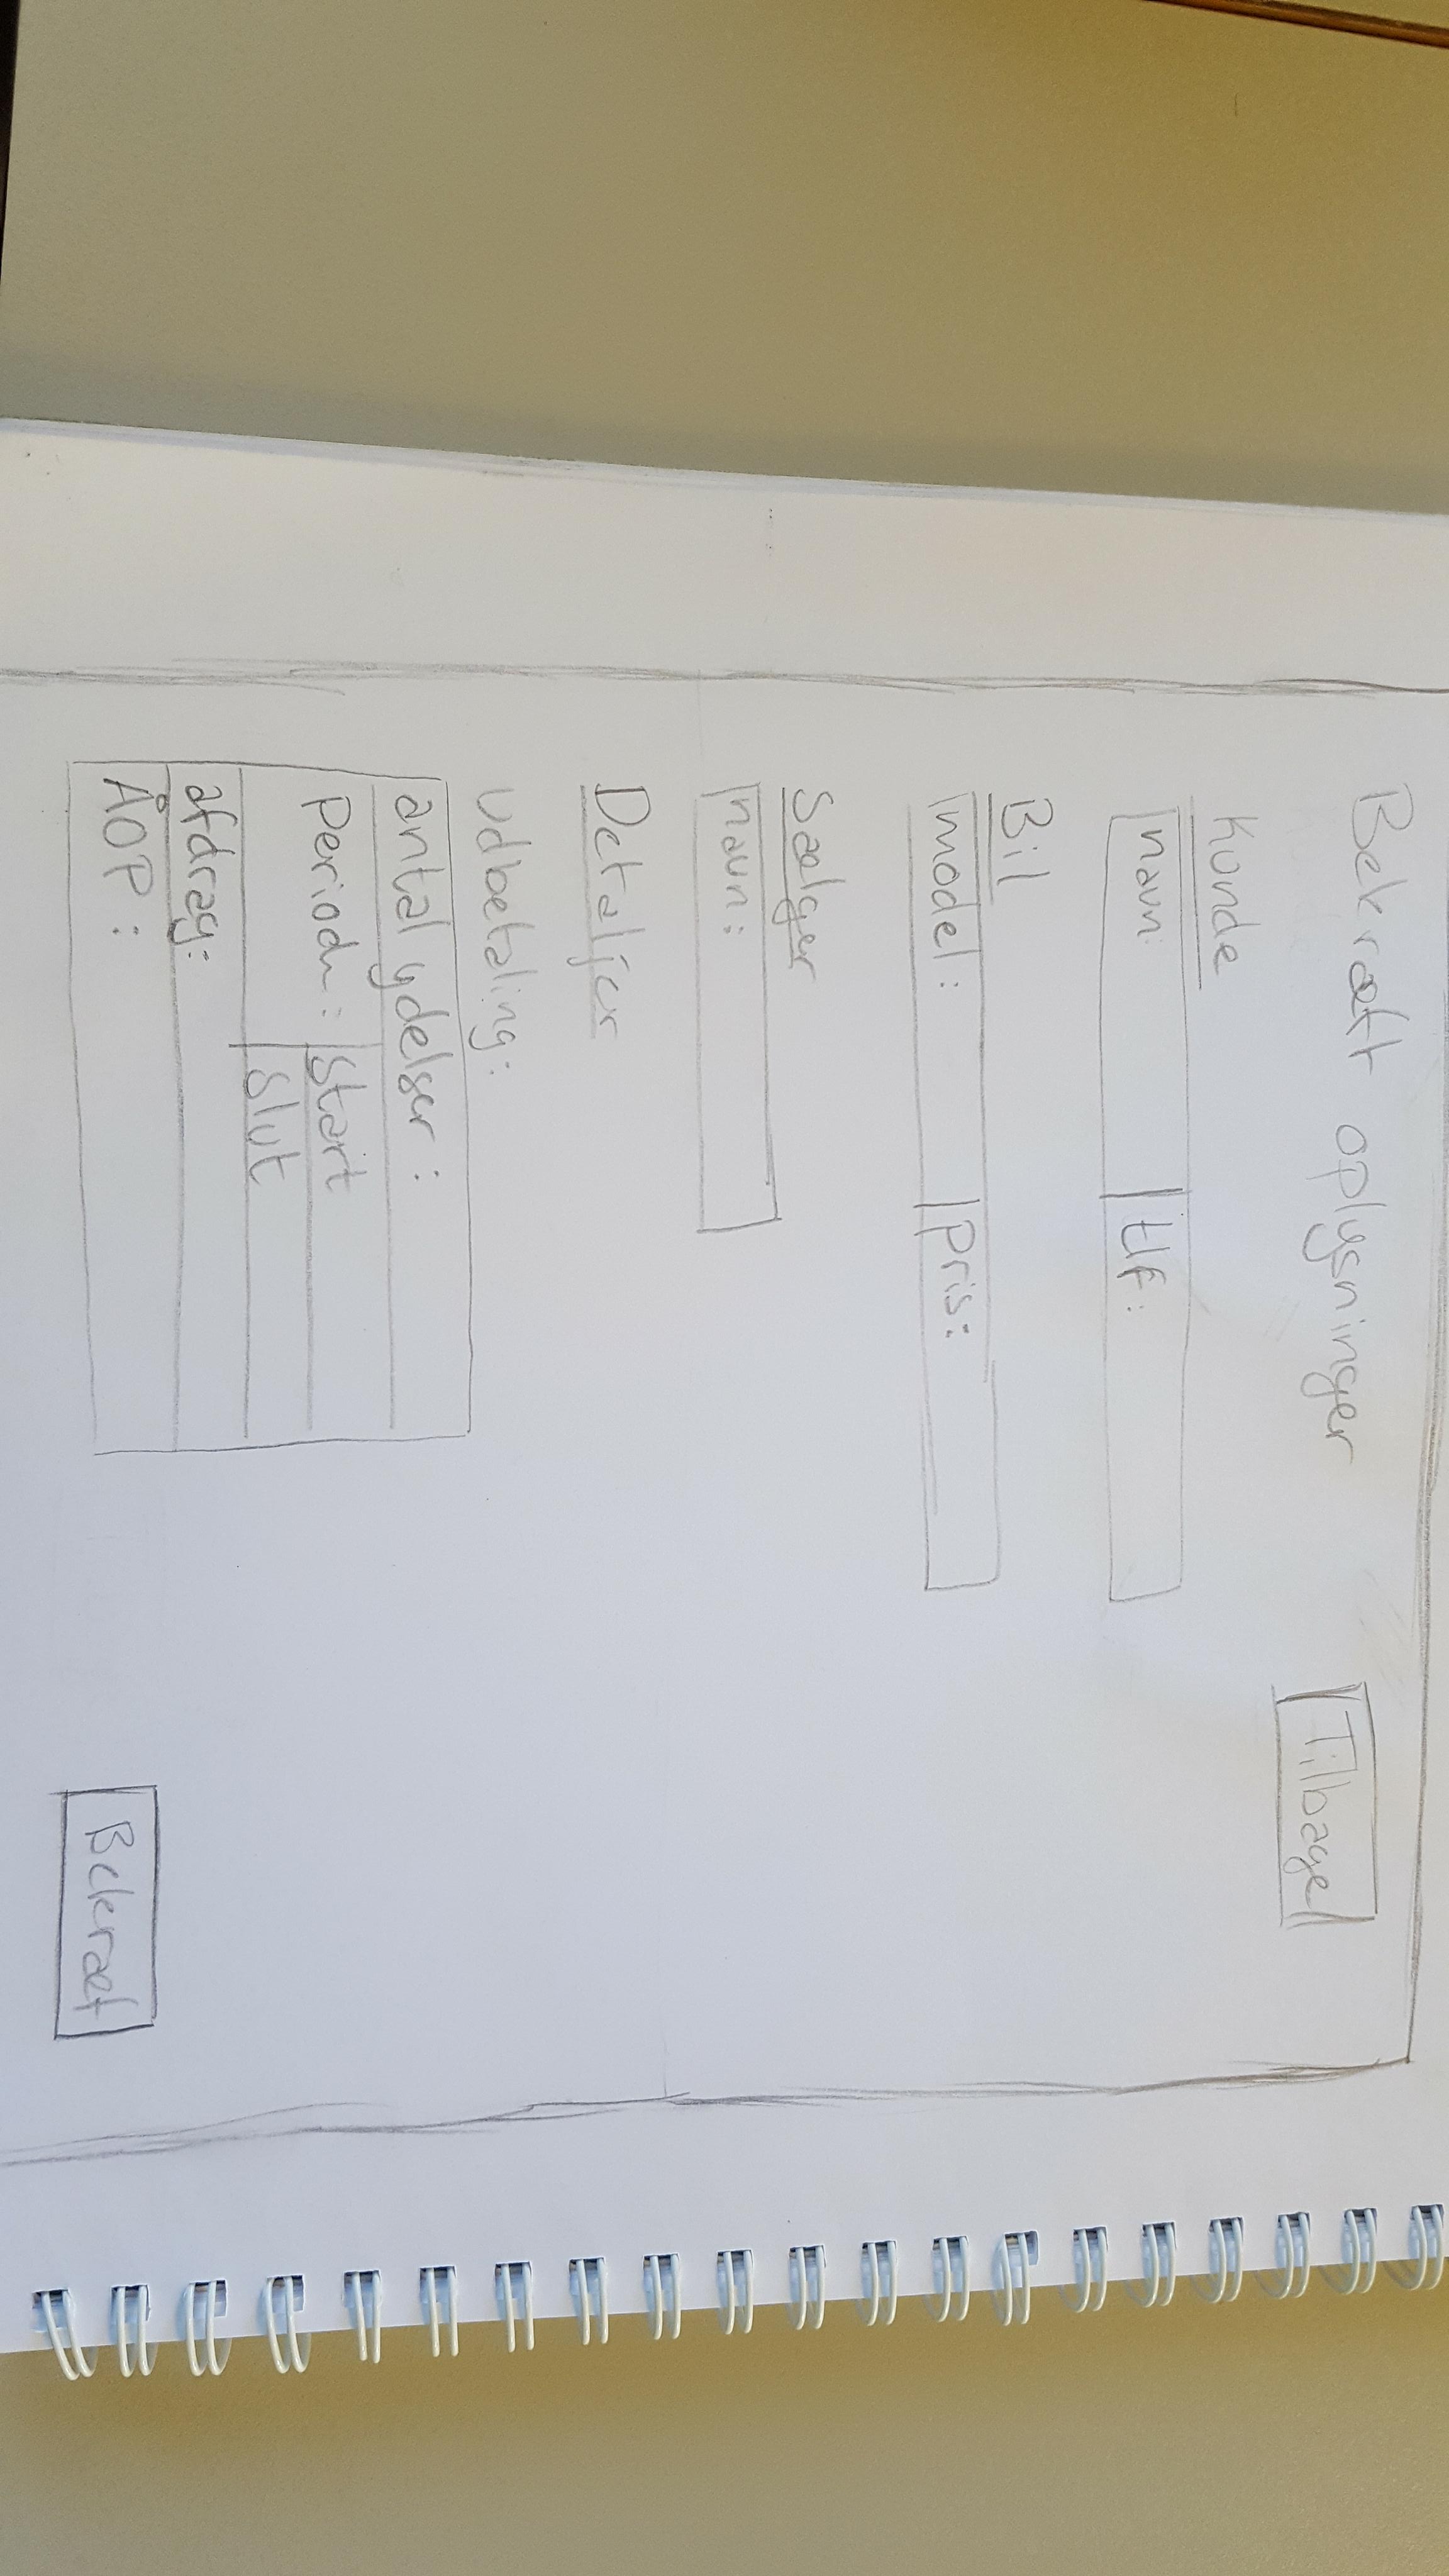 Bekræft oplysninger
Tilbage
Kunde
navn: tlf:
Bil
model: Pris:
Sælger
navn:
Detaljer
Udbetaling:
antal ydelser:
Periode: Start
Slut
afdrag:
ÅOP:
Bekræf